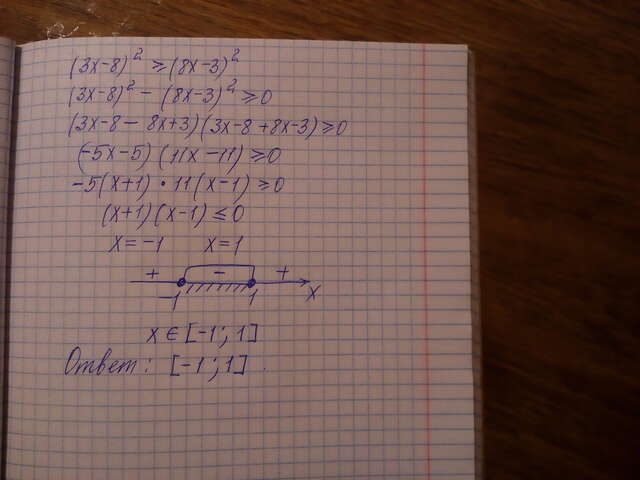 (3x-8)² ≥ (8x-3)²
(3x-8)² - (8x-3)² ≥ 0
(3x-8 - 8x+3)(3x-8+8x-3) ≥ 0
(-5x-5)(11x-11) ≥ 0
-5(x+1)·11(x-1) ≥ 0
(x+1)(x-1) ≤ 0
x = -1 x = 1
+ - +
-1 1 x
x ∈ [-1; 1]
Ответ: [-1; 1].